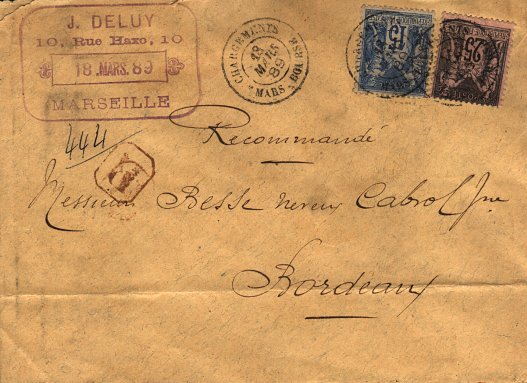 J. DELUY
10, Rue Haxo, 10
18 .MARS. 89
MARSEILLE
CHARGEMENTS
18
MARS
89
15
25
444
R
Recommandé
Messieurs Besse neveux Cabrol Jne
Bordeaux